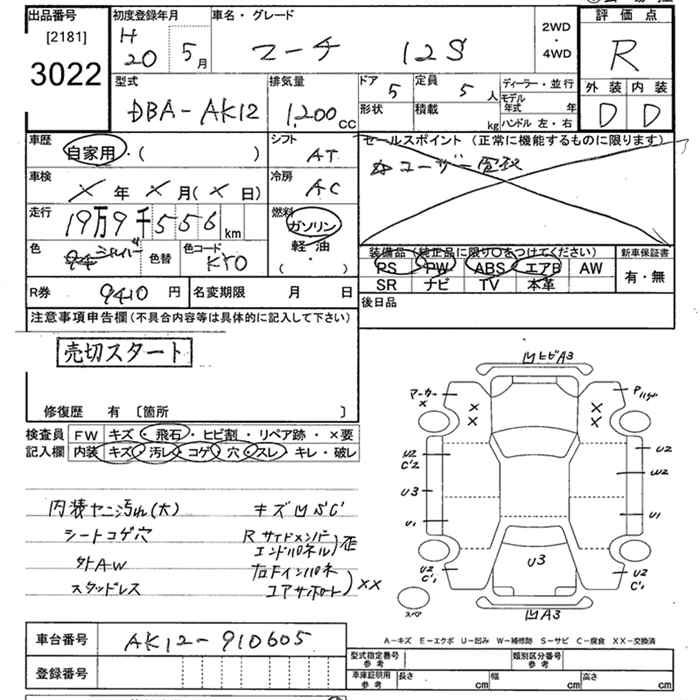 出品番号
[2181]
3022
初度登録年月
H
20
5月
車名・グレード
マーチ 12S
2WD
・
4WD
評価点
R
外装 内装
D D
型式
DBA-AK12
排気量
1,200cc
ドア
5
定員
5人
形状
積載
kg
ディーラー・並行
モデル年式 年
ハンドル 左・右
車歴
自家用・( )
シフト
AT
セールスポイント (正常に機能するものに限ります)
☆ユーザー買取
車検
× 年 × 月(× 日)
冷房
AC
走行
19万9千556km
燃料
ガソリン
軽油
( ・ )
色
シルバー
色替
色コード
KY0
装備品(純正品に限り○をつけてください)
PS PW ABS エアB AW
SR ナビ TV 本革
新車保証書
有・無
R券 9410円
名変期限 月 日
後日品
注意事項申告欄(不具合内容等は具体的に記入して下さい)
売切スタート
修復歴 有 〔箇所 〕
検査員
記入欄
FW キズ・飛石・ヒビ割・リペア跡・×要
内装 キズ・汚レ・コゲ・穴・スレ・キレ・破レ
内装ヤニ汚れ(大)
シートコゲ穴
外AW
スタッドレス
キズ凹サビC
Rサイドメンバー
エンドパネル)歪
右ドインパネ
コアサポート)××
凹ヒビA3
マーカー
×
× ×
× ×
U2
C'2
U3
U1
U2
W2
U1
U3
U2
C'1
U2
C'1
スペア
凹A3
A-キズ E-エクボ U-凹み W-補修跡 S-サビ C-腐食 XX-交換済
車台番号 AK12-910605
登録番号
型式指定番号
参考
類別区分番号
参考
車庫証明用
参考
長さ cm
幅 cm
高さ cm